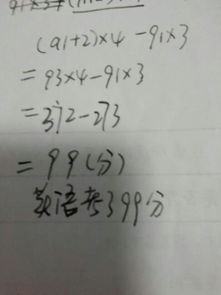 (91+2)×4-91×3
=93×4-91×3
=372-273
=99(分)
英语考了99分